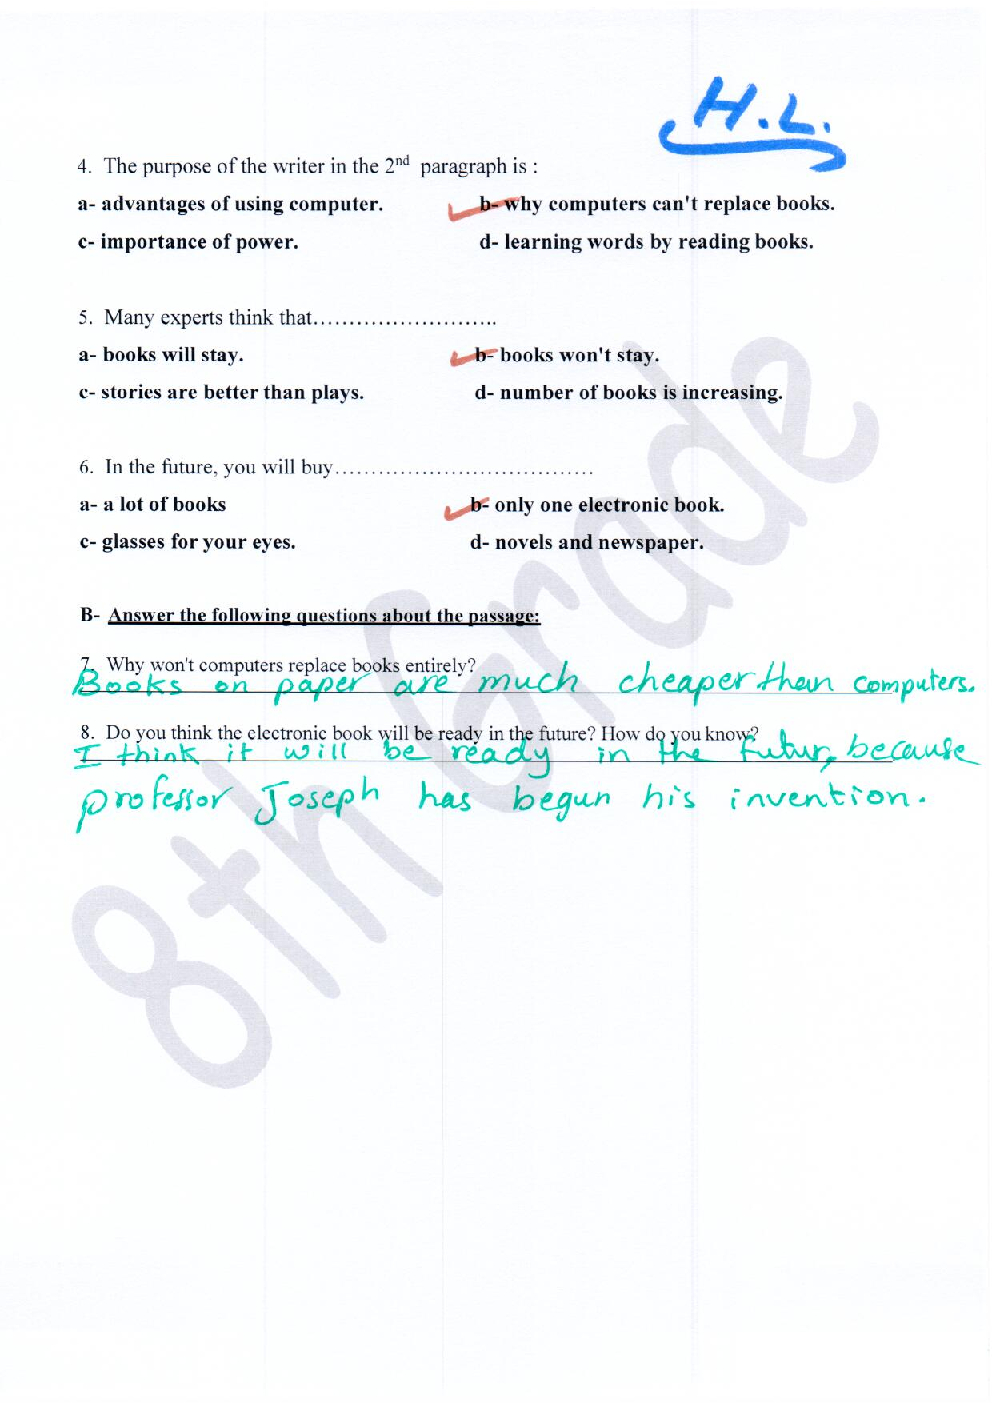 H.L.
4. The purpose of the writer in the 2nd paragraph is :
a- advantages of using computer. b- why computers can't replace books.
c- importance of power. d- learning words by reading books.
5. Many experts think that..........................
a- books will stay. b- books won't stay.
c- stories are better than plays. d- number of books is increasing.
6. In the future, you will buy....................................
a- a lot of books b- only one electronic book.
c- glasses for your eyes. d- novels and newspaper.
B- Answer the following questions about the passage:
7. Why won't computers replace books entirely?
Books on paper are much cheaper than computers.
8. Do you think the electronic book will be ready in the future? How do you know?
I think it will be ready in the futur, because
professor Joseph has begun his invention.
8th Grade